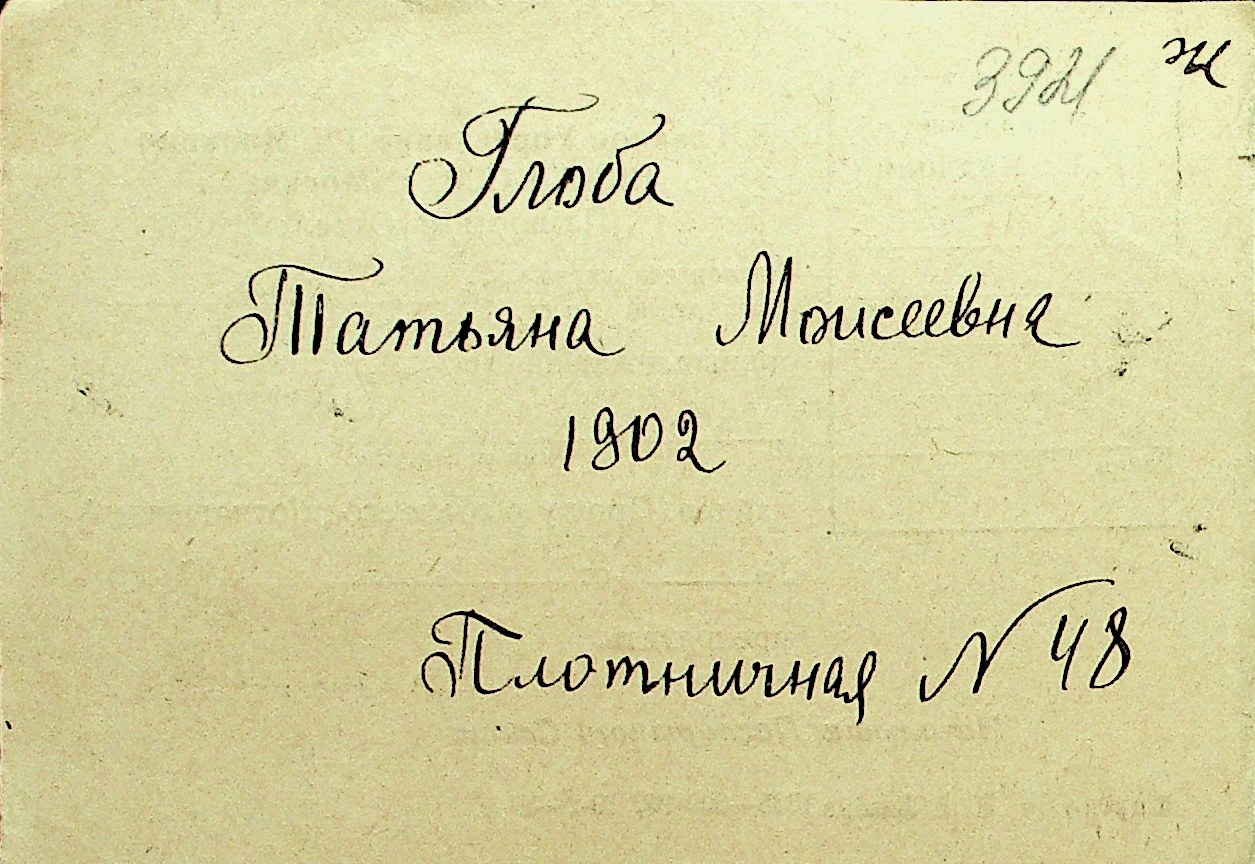 3921 ж
Глоба
Татьяна Моисеевна
1902
Плотничная N 48